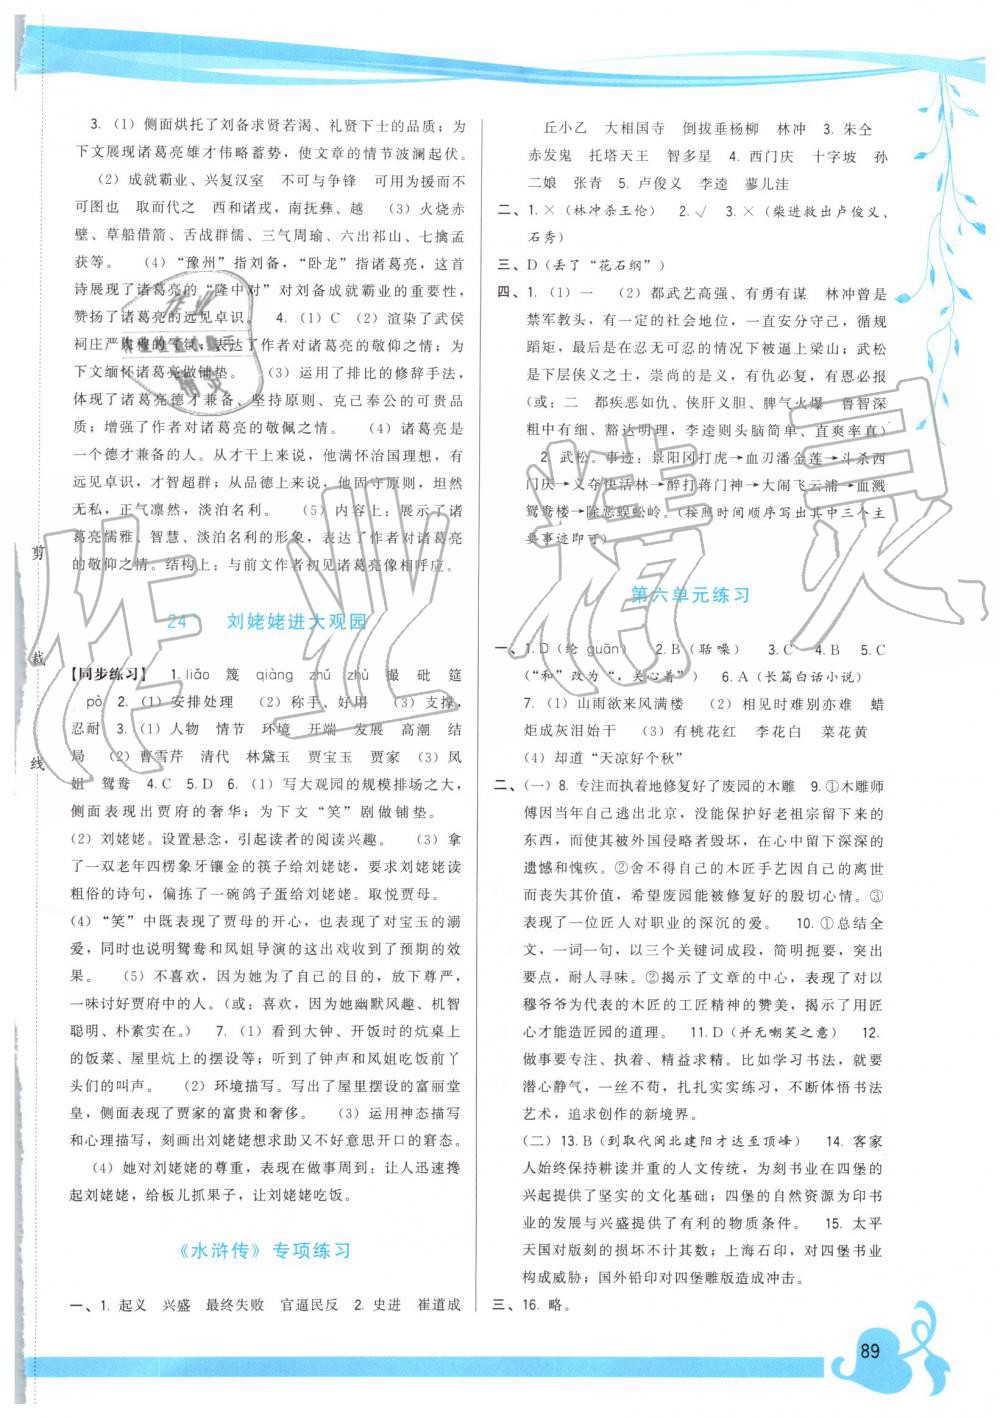 3.（1）侧面烘托了刘备求贤若渴、礼贤下士的品质；为
下文展现诸葛亮雄才伟略蓄势，使文章的情节波澜起伏。
（2）成就霸业、兴复汉室　不可与争锋　可用为援而不
可图也　取而代之　西和诸戎，南抚彝、越　（3）火烧赤
壁、草船借箭、舌战群儒、三气周瑜、六出祁山、七擒孟
获等。　（4）“豫州”指刘备，“卧龙”指诸葛亮，这首
诗展现了诸葛亮的“隆中对”对刘备成就霸业的重要性，
赞扬了诸葛亮的远见卓识。　4.（1）C　（2）渲染了武侯
祠庄严肃穆的气氛；表达了作者对诸葛亮的敬仰之情；为
下文缅怀诸葛亮做铺垫。　（3）运用了排比的修辞手法，
体现了诸葛亮德才兼备、坚持原则、克己奉公的可贵品
质；增强了作者对诸葛亮的敬佩之情。　（4）诸葛亮是
一个德才兼备的人。从才干上来说，他怀济国理想，有
远见卓识，才智超群；从品德上来说，他固守原则，坦然
无私，正气凛然，淡泊名利。　（5）内容上：展示了诸
葛亮儒雅、智慧、淡泊名利的形象，表达了作者对诸葛亮
的敬仰之情。结构上：与前文作者初见诸葛亮像相呼应。
24　刘姥姥进大观园
【同步练习】　1.liǎo　篾　qiàng　zhǔ　zhù　撮　砒　筵
pò　2.（1）安排处理　（2）称手、好用　（3）支撑，
忍耐　3.（1）人物　情节　环境　开端　发展　高潮　结
局　（2）曹雪芹　清代　林黛玉　贾宝玉　贾家　（3）凤
姐　鸳鸯　4.C　5.D　6.（1）写大观园的规模排场之大，
侧面表现出贾府的奢华；为下文“笑”剧做铺垫。
（2）刘姥姥。设置悬念，引起读者的阅读兴趣。　（3）拿
了一双老年四楞象牙镶金的筷子给刘姥姥，要求刘姥姥读
粗俗的诗句，偏拣了一碗鸽子蛋给刘姥姥。取悦贾母。
（4）“笑”中既表现了贾母的开心，也表现了对宝玉的溺
爱，同时也说明鸳鸯和凤姐导演的这出戏收到了预期的效
果。　（5）不喜欢，因为她为了自己的目的，放下尊严，
一味讨好贾府中的人。（或：喜欢，因为她幽默风趣、机智
聪明、朴素实在。）　7.（1）看到大钟、开饭时的炕桌上
的饭菜、屋里炕上的摆设等；听到了钟声和凤姐吃饭前丫
头们的叫声。　（2）环境描写。写出了屋里摆设的富丽堂
皇，侧面表现了贾家的富贵和奢侈。　（3）运用神态描写
和心理描写，刻画出刘姥姥想求助又不好意思开口的窘态。
（4）她对刘姥姥的尊重，表现在做事周到：让人迅速搀
起刘姥姥，给板儿抓果子，让刘姥姥吃饭。
《水浒传》专项练习
一、1.起义　兴盛　最终失败　官逼民反　2.史进　崔道成
丘小乙　大相国寺　倒拔垂杨柳　林冲　3.朱仝
赤发鬼　托塔天王　智多星　4.西门庆　十字坡　孙
二娘　张青　5.卢俊义　李逵　蓼儿洼
二、1.×（林冲杀王伦）　2.√　3.×（柴进救出卢俊义、
石秀）
三、D（丢了“花石纲”）
四、1.（1）一　（2）都武艺高强、有勇有谋　林冲曾是
禁军教头，有一定的社会地位，一直安分守己，循规
蹈矩，最后是在忍无可忍的情况下被逼上梁山；武松
是下层侠义之士，崇尚的是义，有仇必复，有恩必报
（或：二　都疾恶如仇、侠肝义胆、脾气火爆　鲁智深
粗中有细、豁达明理，李逵则头脑简单、直爽率真）
2.武松。事迹：景阳冈打虎→血刃潘金莲→斗杀西
门庆→义夺快活林→醉打蒋门神→大闹飞云浦→血溅
鸳鸯楼→除恶蜈蚣岭。（按照时间顺序写出其中三个主
要事迹即可）
第六单元练习
一、1.D（纶 guān）　2.B（聒噪）　3.C　4.B　5.C
（“和”改为“，关心着”）　6.A（长篇白话小说）
7.（1）山雨欲来风满楼　（2）相见时难别亦难　蜡
炬成灰泪始干　（3）有桃花红　李花白　菜花黄
（4）却道“天凉好个秋”
二、（一）8.专注而执着地修复好了废园的木雕　9.①木雕师
傅因当年自己逃出北京，没能保护好老祖宗留下来的
东西，而使其被外国侵略者毁坏，在心中留下深深的
遗憾和愧疚。②舍不得自己的木匠手艺因自己的离世
而丧失其价值，希望废园能被修复好的殷切心情。③
表现了一位匠人对职业的深沉的爱。　10.①总结全
文，一词一句，以三个关键词成段，简明扼要，突出
要点，耐人寻味。②揭示了文章的中心，表现了对以
穆爷爷为代表的木匠的工匠精神的赞美，揭示了用匠
心才能造匠园的道理。　11.D（并无嘲笑之意）　12.
做事要专注、执着、精益求精。比如学习书法，就要
潜心静气，一丝不苟，扎扎实实练习，不断体悟书法
艺术，追求创作的新境界。
（二）13.B（到取代闽北建阳才达至顶峰）　14.客家
人始终保持耕读并重的人文传统，为刻书业在四堡的
兴起提供了坚实的文化基础；四堡的自然资源为印书
业的发展与兴盛提供了有利的物质条件。　15.太平
天国对版刻的损坏不计其数；上海石印，对四堡书业
构成威胁；国外铅印对四堡雕版造成冲击。
三、16.略。
剪
裁
线
作业精灵
89